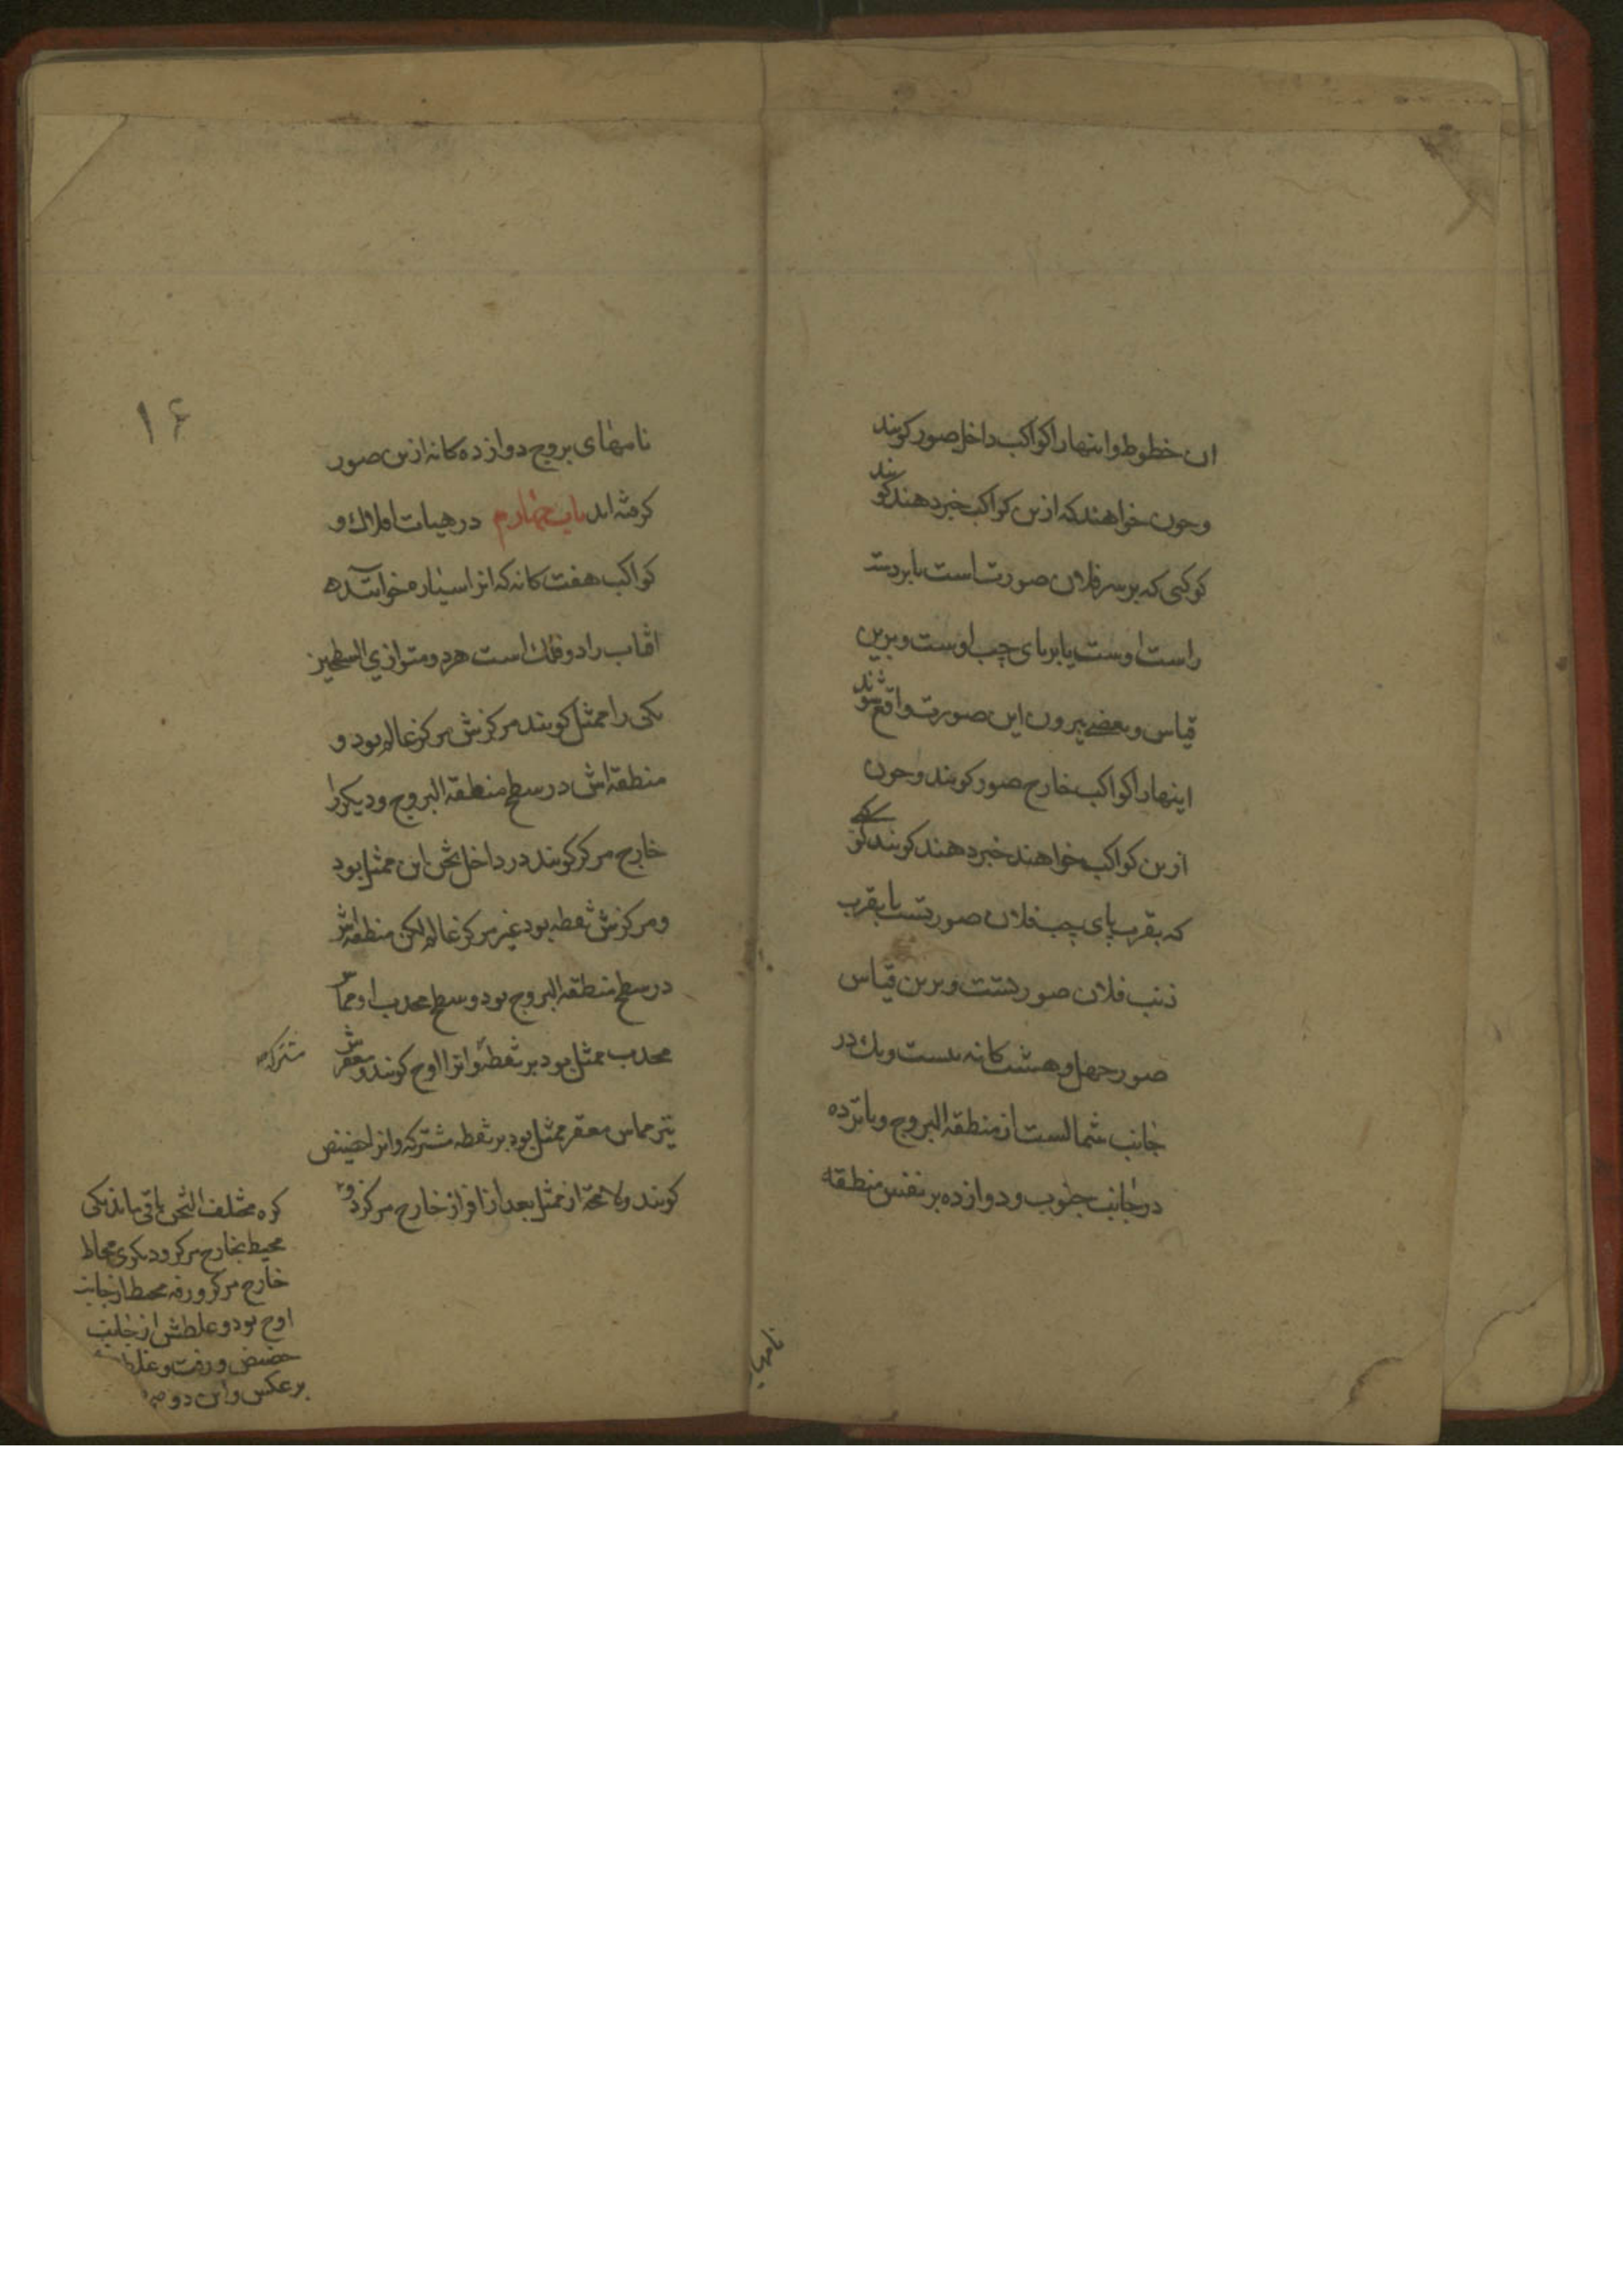 ان خطوط و اینها را کواکب داخل صور کویند
وچون خواهند که ازین کواکب خبر دهند کویند
کوکبی که بر سر فلان صورتست یا بر دست
راست اوست یا بر پای چپ اوست و برین
قیاس و بعضی بیرون این صورت واقع شوند
اینها را کواکب خارج صور کویند و چون
ازین کواکب خواهند خبر دهند کویند کوکبی
که بقرب پای چپ فلان صورتست یا بقرب
ذنب فلان صورتست و برین قیاس
صور چهل و هشت کانه بیست و یک در
جانب شمالست از منطقة البروج و پانزده
در جانب جنوب و دوازده بر نفس منطقه
نامهای
۱۶
نامهای بروج دوازده کانه ازین صور
کرفته اند باب چهارم در هیات افلاک و
کواکب هفت کانه که انرا سیاره خوانند
افتاب را دو فلک است هر دو متوازی السطحین
یکی را ممثل کویند مرکزش مرکز عالم بود و
منطقه اش در سطح منطقة البروج و دیکر را
خارج مرکز کویند در داخل ثخن این ممثل بود
و مرکزش نقطه بود غیر مرکز عالم لکن منطقه اش
در سطح منطقة البروج بود و سطح محدب او مماس
محدب ممثل بود بر نقطهٔ و انرا اوج کویند و مقعرش
مشترکه
نیز مماس مقعر ممثل بود بر نقطه مشترکه و انرا حضیض
کویند و لا محة از ممثل بعد از افراز خارج مرکز دو
کره مختلف الثخن باقی ماند یکی
محیط بخارج مرکز و دیکری محاط
خارج مرکز و رقه محیط از جانب
اوج بود و غلظش از جانب
حضیض و رقت و غلظ
بر عکس و این دو